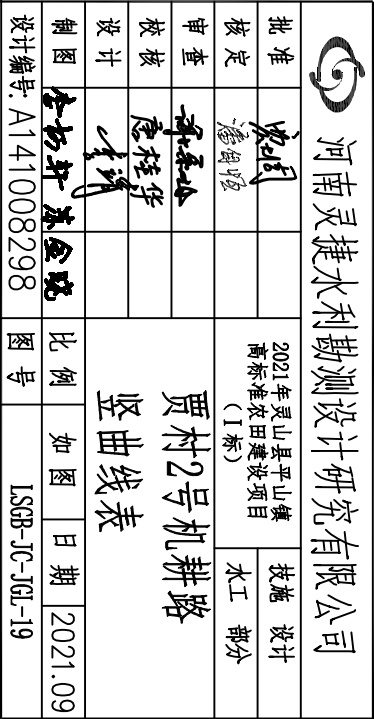 河南灵捷水利勘测设计研究有限公司
批准
核定
审查
校核
设计
制图
设计编号: A141008298
潘国恒
唐桂华
李涛
2021年灵山县平山镇
高标准农田建设项目
（I标）
技施 设计
水工 部分
贾村2号机耕路
竖曲线表
比例 如图 日期 2021.09
图号 LSGB-JC-JGL-19